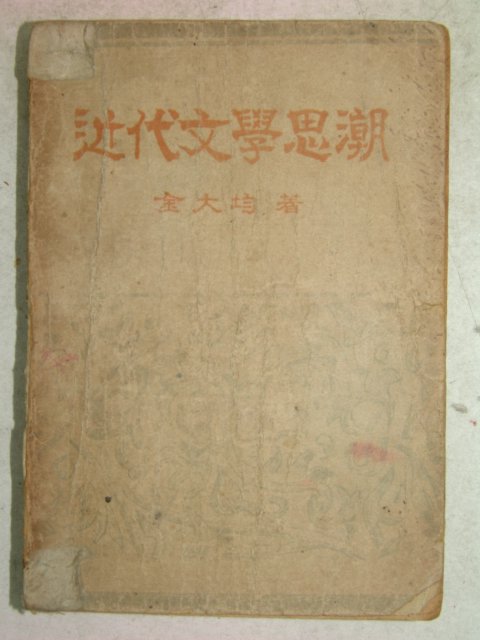 近代文學思潮
金大均 著